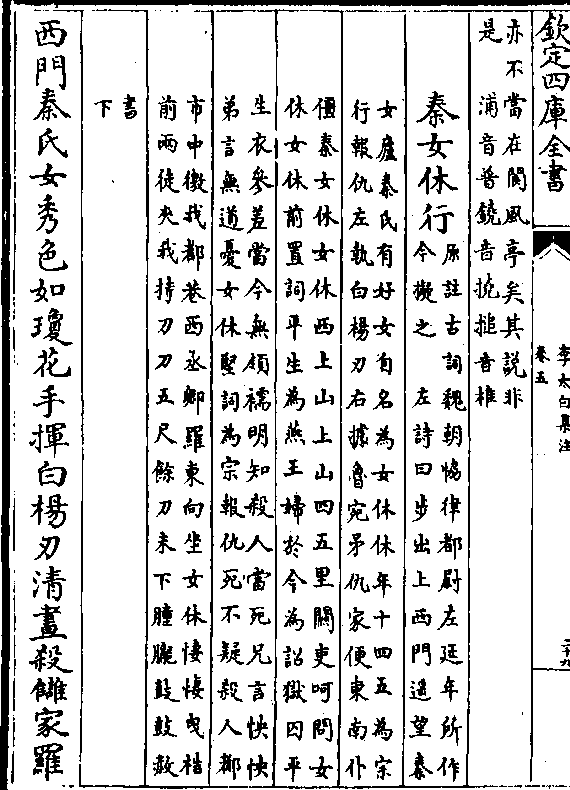 欽定四庫全書
李太白集注
卷五
二十九
亦不當在閬風亭矣其說非
是 浦音普鐃音撓搥音椎
秦女休行
原註古詞魏朝協律都尉左延年所作
今擬之 左詩曰步出上西門遥望秦
女廬秦氏有好女自名為女休休年十四五為宗
行報仇左執白楊刃右據魯宛矛仇家便東南仆
僵秦女休女休西上山上山四五里關吏呵問女
休女休前置詞平生為燕王婦於今為詔獄囚平
生衣參差當今無領襦明知殺人當死兄言怏怏
弟言無道憂女休堅詞為宗報仇死不疑殺人都
市中徼我都巷西丞卿羅東向坐女休悽悽曳梏
前兩徒夾我持刀刀五尺餘刀未下朣朧鼓鼓赦
書
下
西門秦氏女秀色如瓊花手揮白楊刃清晝殺讎家羅